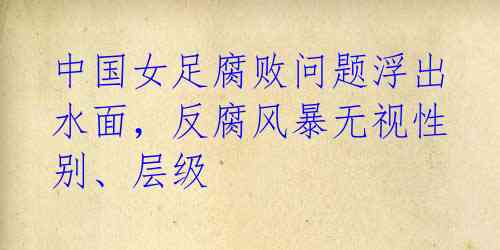 中国女足腐败问题浮出
水面，反腐风暴无视性
别、层级